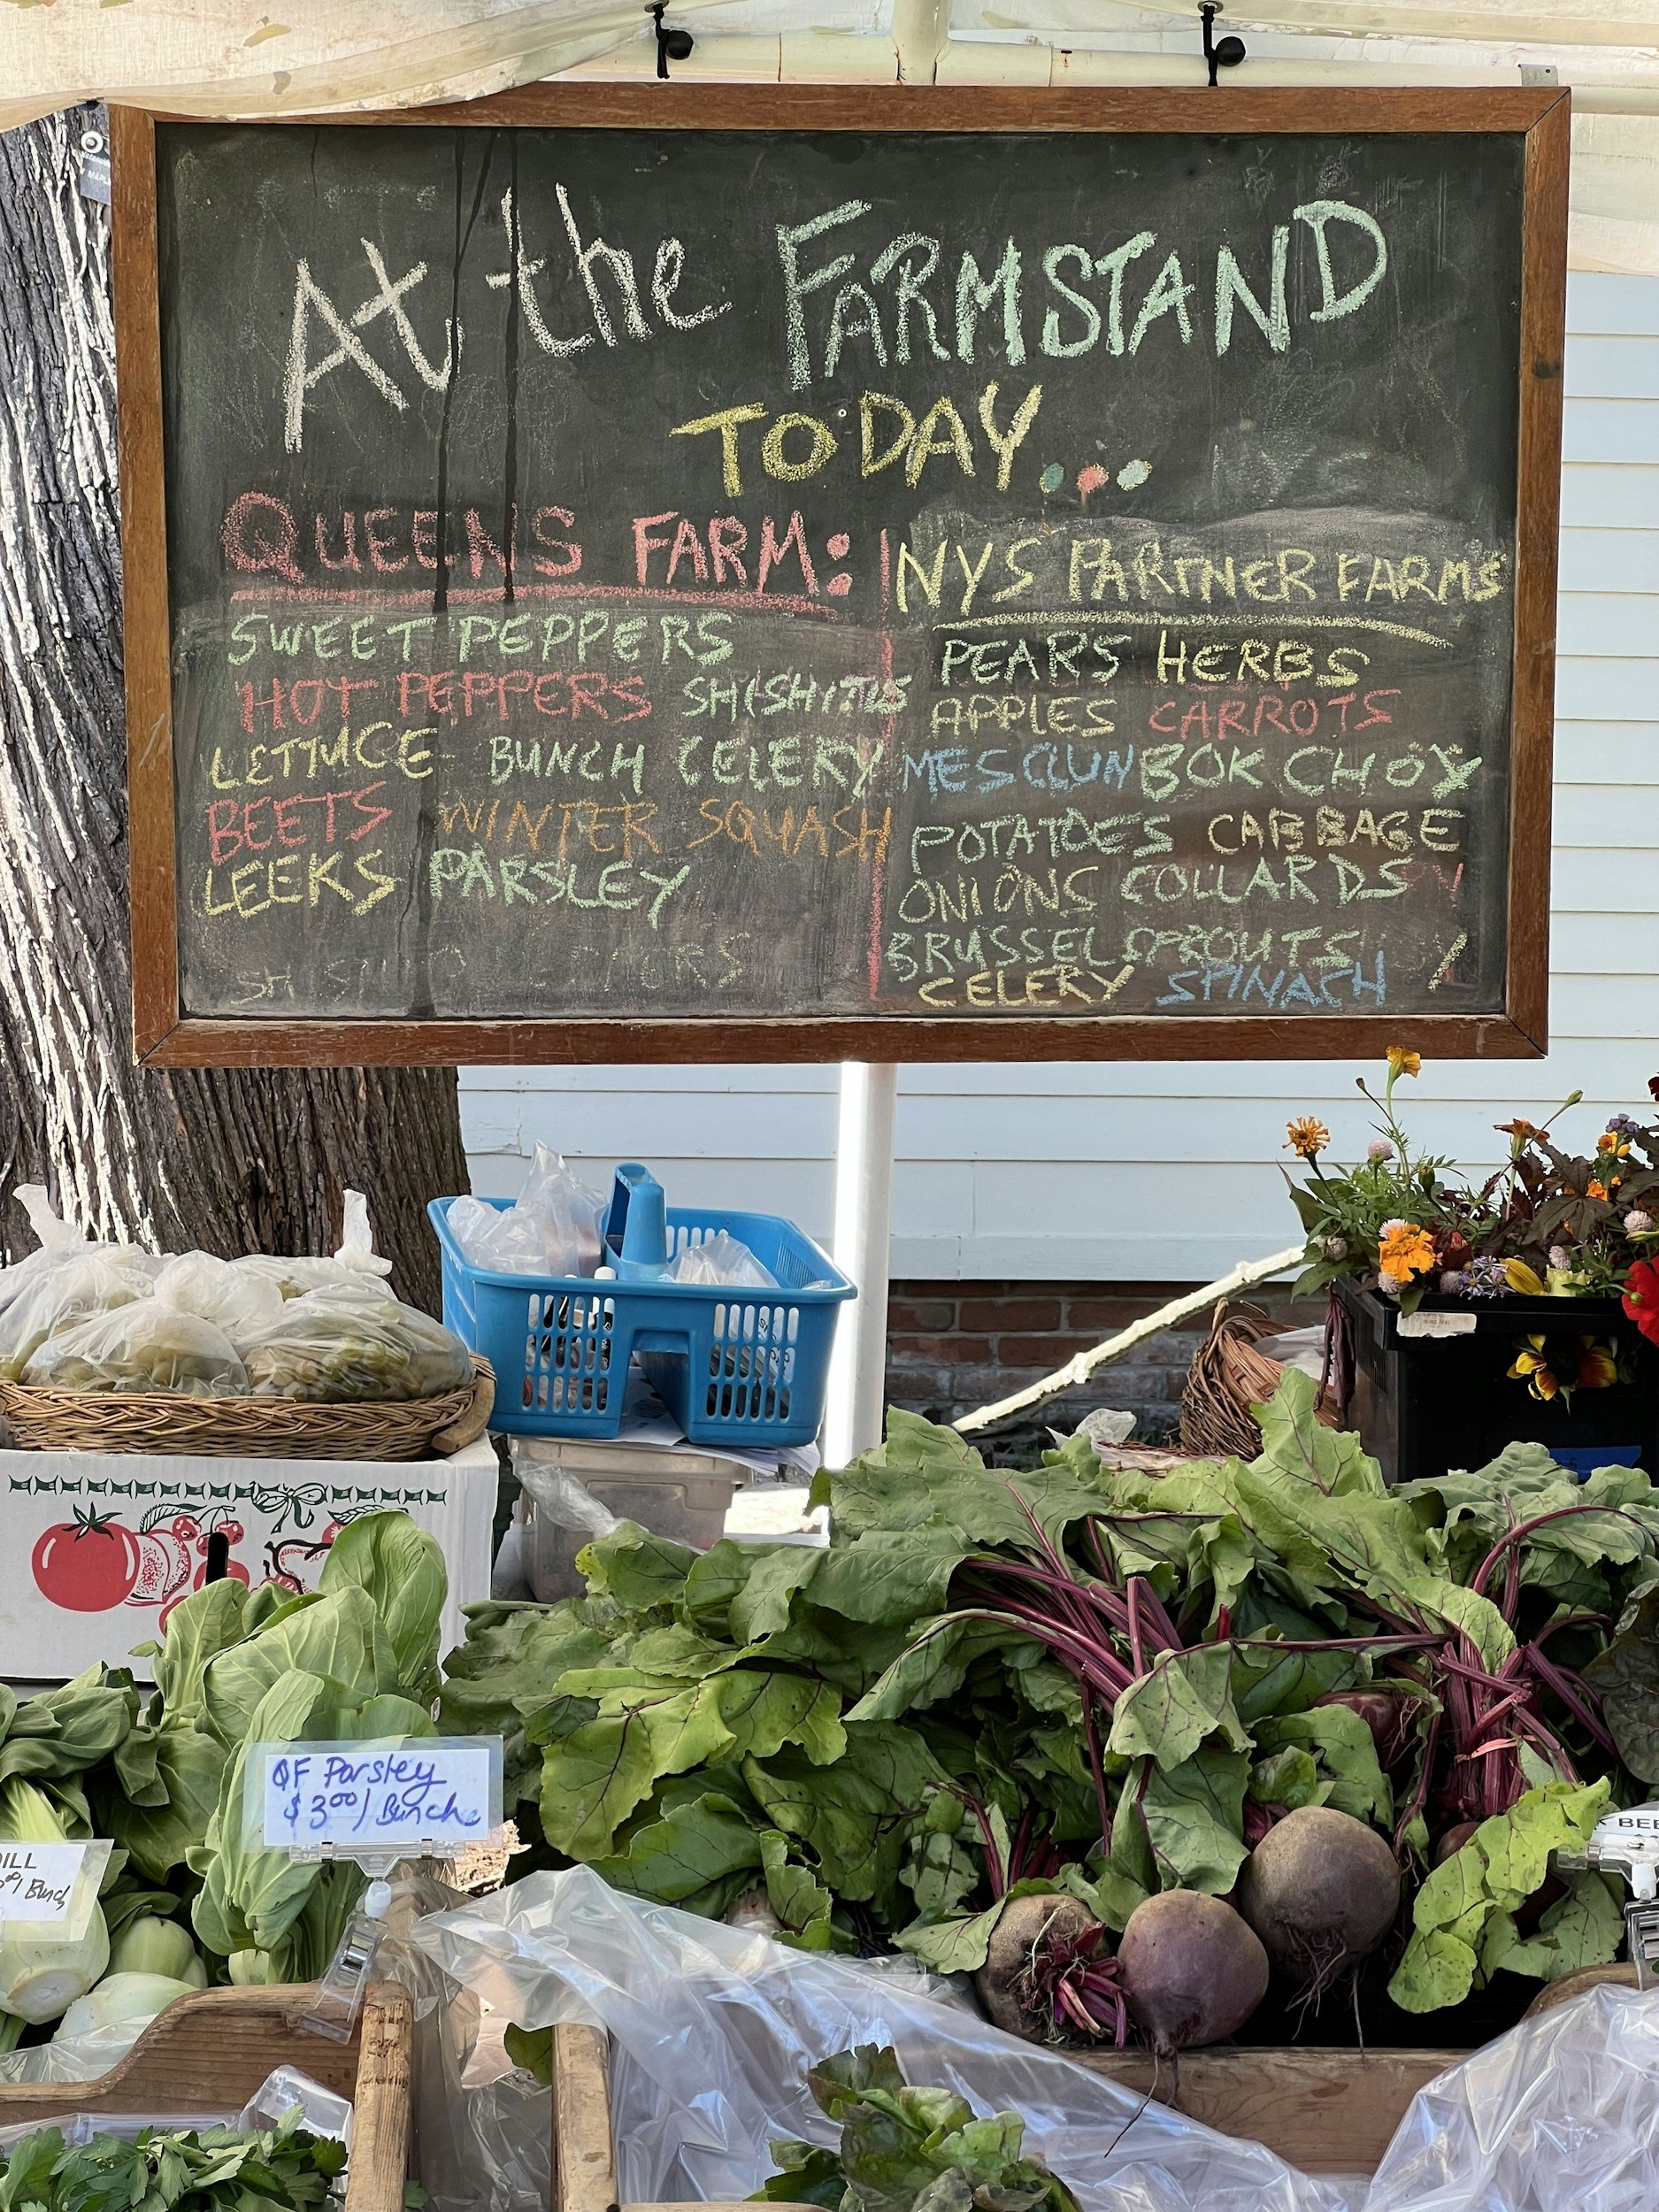 At the FARMSTAND
TODAY...
QUEENS FARM:
SWEET PEPPERS
HOT PEPPERS SHISHITOS
LETTUCE BUNCH CELERY
BEETS WINTER SQUASH
LEEKS PARSLEY
NYS PARTNER FARMS
PEARS HERBS
APPLES CARROTS
MESCLUN BOK CHOY
POTATOES CABBAGE
ONIONS COLLARDS
BRUSSEL SPROUTS
CELERY SPINACH
QF Parsley
$3.00/Bunch
Bunch